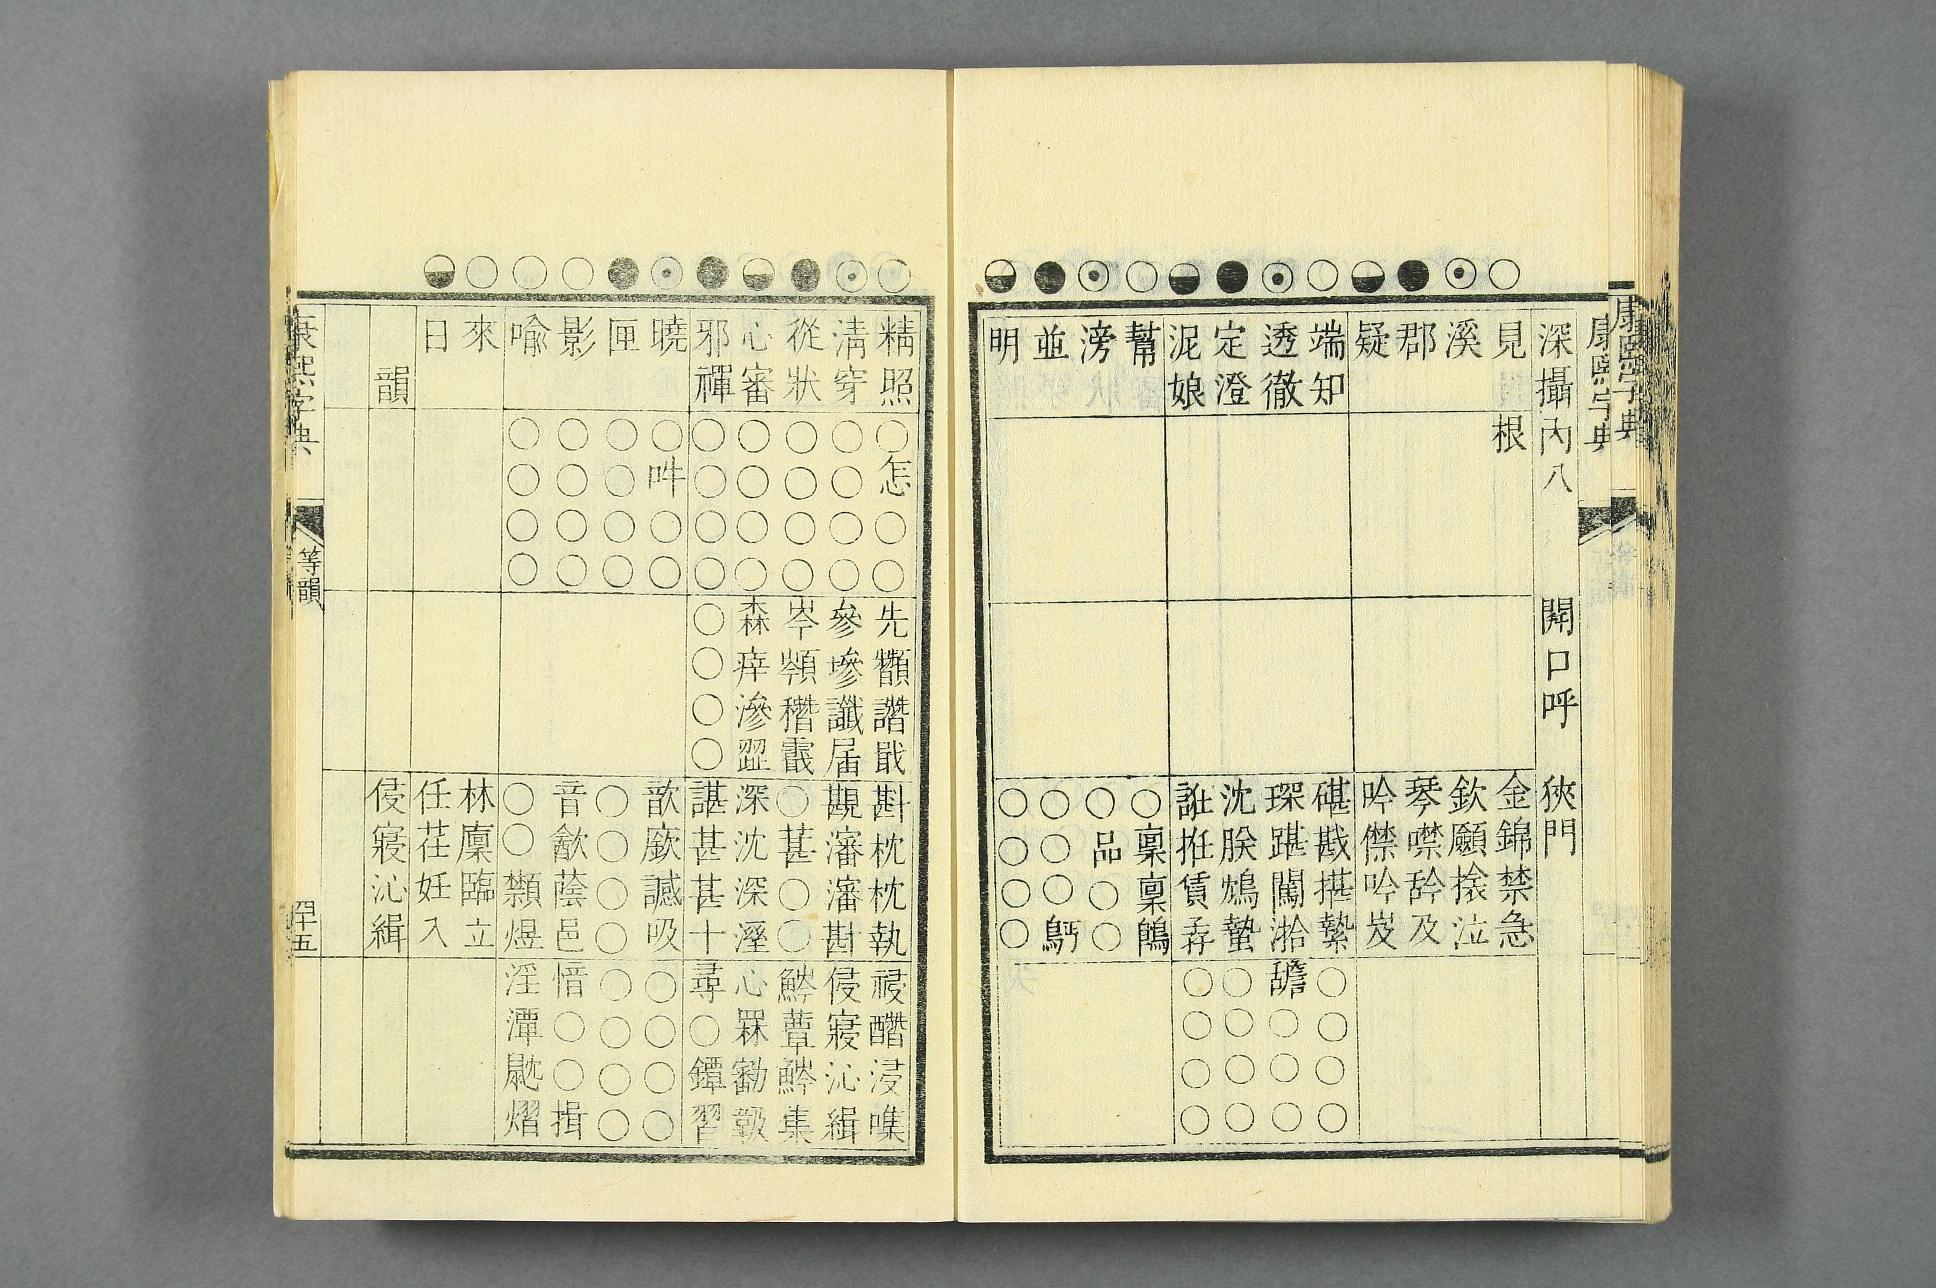 康熙字典
深攝內八 開口呼 狹門
見 根 金錦禁急
溪 欽廞搇泣
郡 琴噤㪁及
疑 吟僸吟岌
端知 碪戡揕縶 ○○○○
透徹 琛踸闖湁 ○○○
定澄 沈朕鴆蟄 ○○○○
泥娘 誑拰賃孨 ○○○○
幫 ○稟稟鵖
滂 ○品○○
並 ○○○鴔
明 ○○○○
精照 ○怎○○ 先顩譖戢 斟枕枕執 祲醋浸噍
清穿 ○○○○ 參墋讖届 觀瀋瀋斟 侵寢沁緝
從狀 ○○○○ 岑穧霵 ○葚○○ 蕈集
心審 ○○○○ 森痒滲澀 深沈深溼 心罧
邪禪 ○○○○ ○○○○ 諶甚甚十 尋○鐔習
曉 ○吽○○ 歆廞諴吸 ○○○○
匣 ○○○○ ○○○○ ○○○○
影 ○○○○ 音歙蔭邑 愔○○揖
喻 ○○○○ ○○顉煜 淫潭熠
來 林廩臨立
日 任荏妊入
韻 侵寢沁緝
康熙字典 等韻 四十五